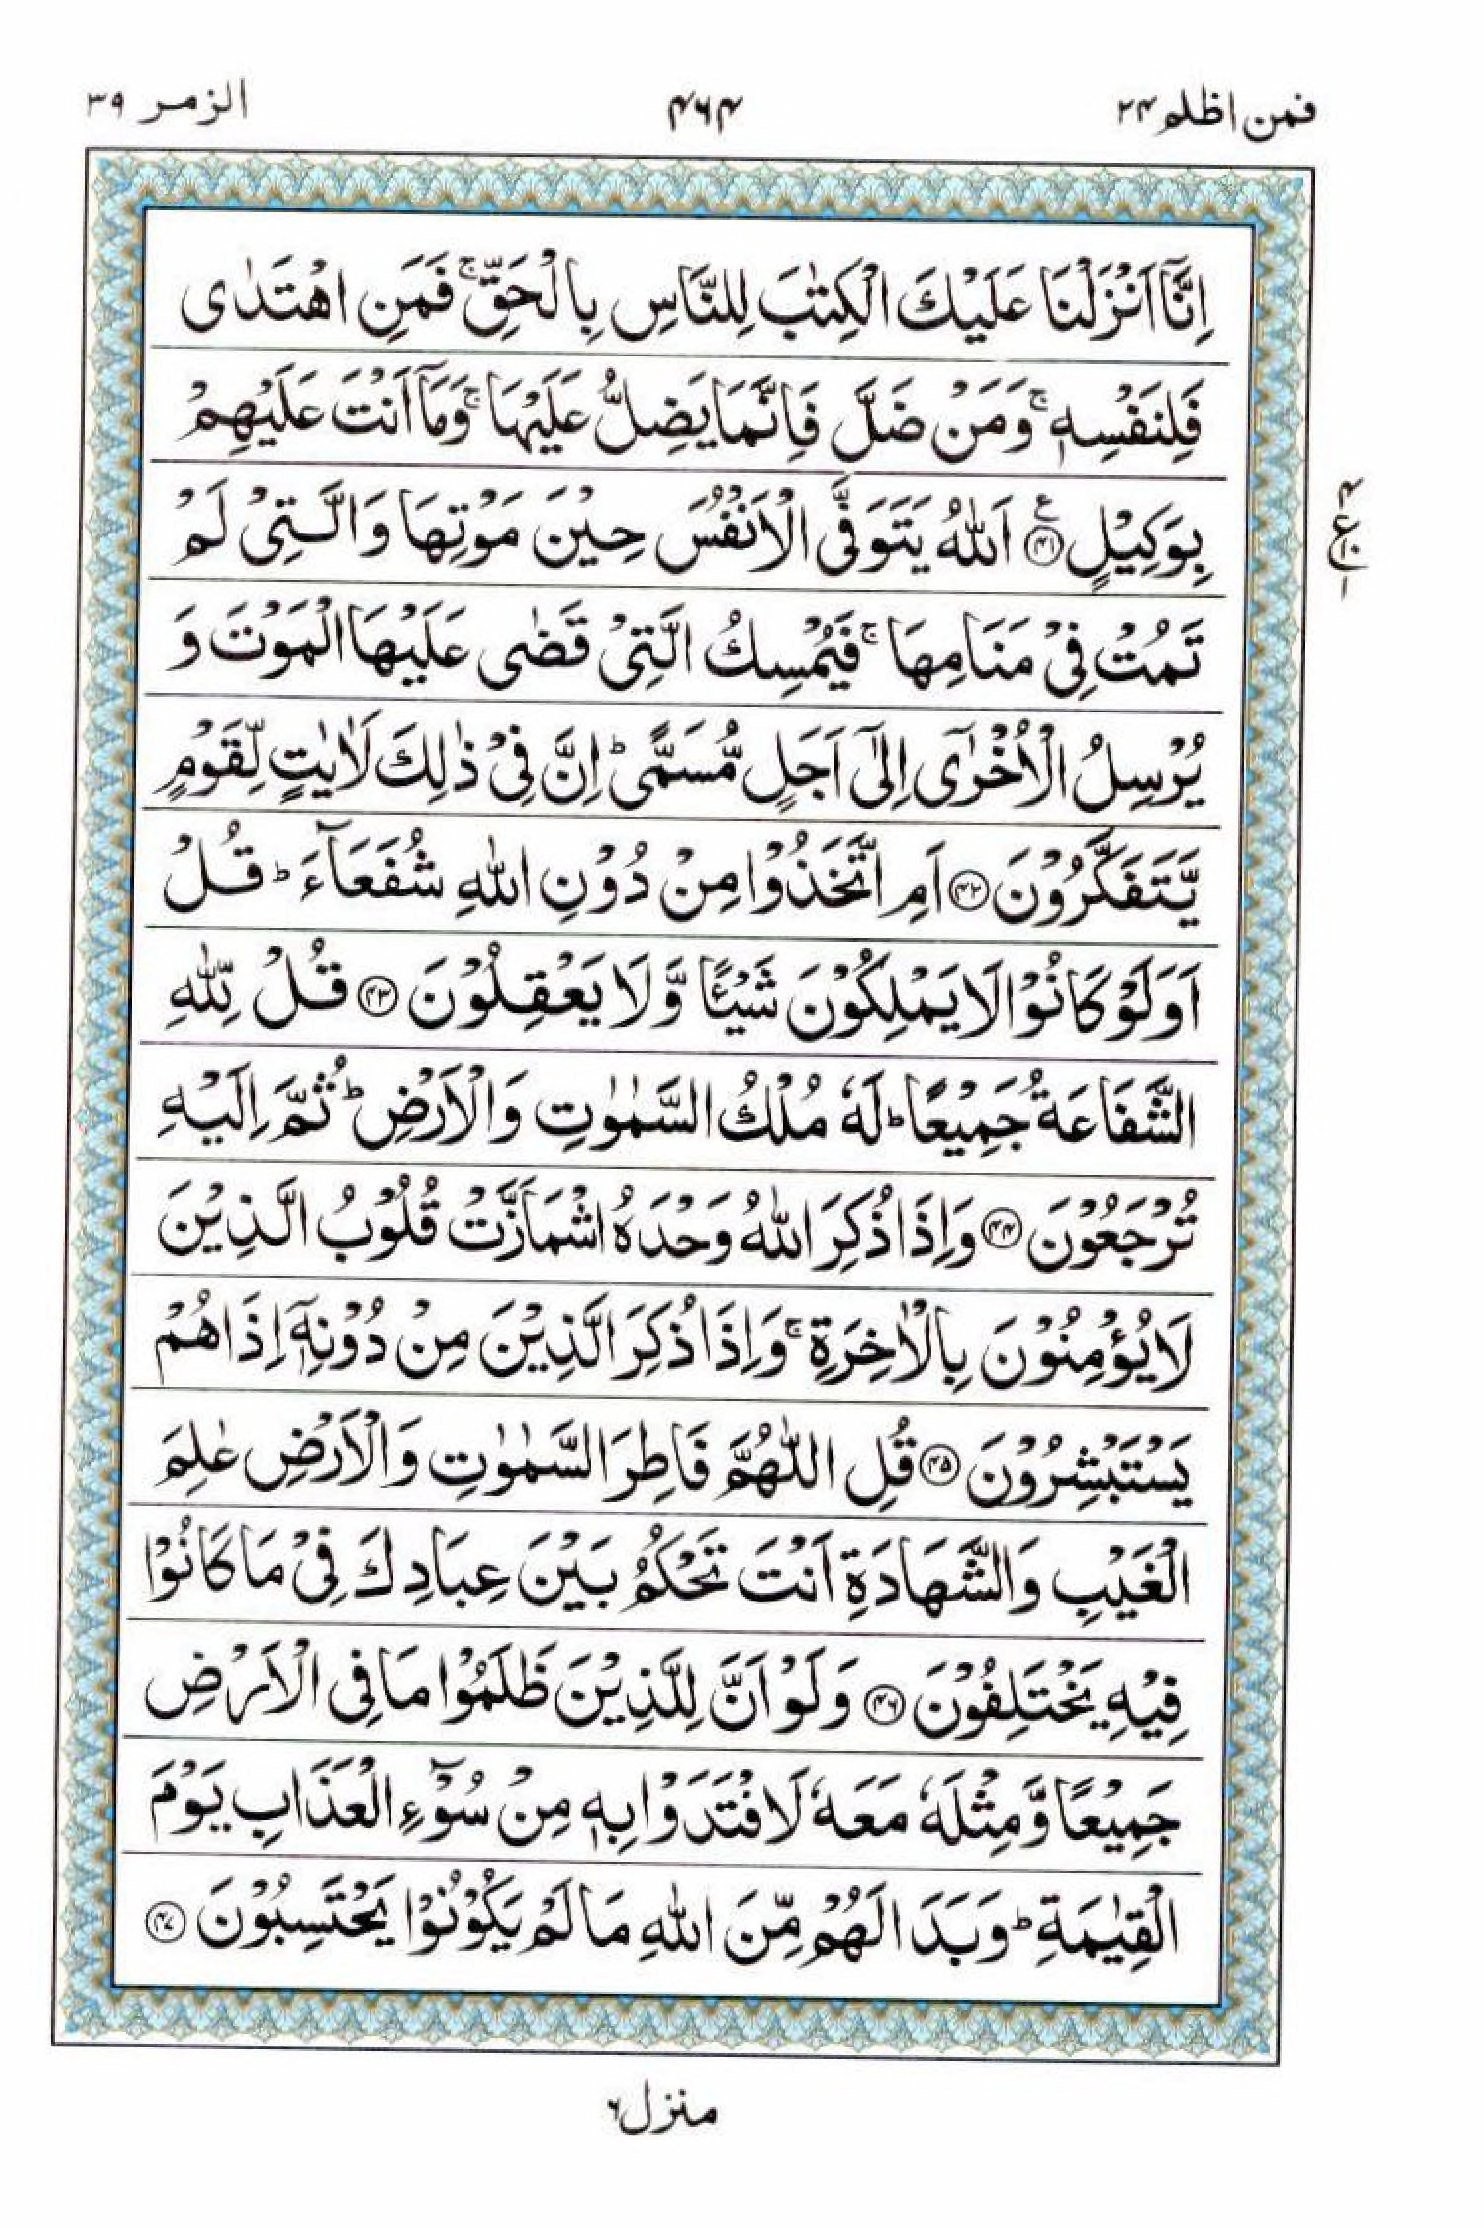 فمن اظلم ۲۴
۴۶۴
الزمر ۳۹
اِنَّاۤ اَنْزَلْنَا عَلَیْكَ الْكِتٰبَ لِلنَّاسِ بِالْحَقِّ ۚ فَمَنِ اهْتَدٰی
فَلِنَفْسِهٖ ۚ وَمَنْ ضَلَّ فَاِنَّمَا یَضِلُّ عَلَیْهَا ۚ وَمَاۤ اَنْتَ عَلَیْهِمْ
بِوَكِیْلٍ ﴿۴۱﴾ ع اَللّٰهُ یَتَوَفَّی الْاَنْفُسَ حِیْنَ مَوْتِهَا وَالَّتِیْ لَمْ
تَمُتْ فِیْ مَنَامِهَا ۚ فَیُمْسِكُ الَّتِیْ قَضٰی عَلَیْهَا الْمَوْتَ وَ
یُرْسِلُ الْاُخْرٰۤی اِلٰۤی اَجَلٍ مُّسَمًّی ؕ اِنَّ فِیْ ذٰلِكَ لَاٰیٰتٍ لِّقَوْمٍ
یَّتَفَكَّرُوْنَ ﴿۴۲﴾ اَمِ اتَّخَذُوْا مِنْ دُوْنِ اللّٰهِ شُفَعَآءَ ؕ قُلْ
اَوَلَوْ كَانُوْا لَا یَمْلِكُوْنَ شَیْـًٔا وَّلَا یَعْقِلُوْنَ ﴿۴۳﴾ قُلْ لِّلّٰهِ
الشَّفَاعَةُ جَمِیْعًا ؕ لَهٗ مُلْكُ السَّمٰوٰتِ وَالْاَرْضِ ؕ ثُمَّ اِلَیْهِ
تُرْجَعُوْنَ ﴿۴۴﴾ وَاِذَا ذُكِرَ اللّٰهُ وَحْدَهُ اشْمَاَزَّتْ قُلُوْبُ الَّذِیْنَ
لَا یُؤْمِنُوْنَ بِالْاٰخِرَةِ ۚ وَاِذَا ذُكِرَ الَّذِیْنَ مِنْ دُوْنِهٖۤ اِذَا هُمْ
یَسْتَبْشِرُوْنَ ﴿۴۵﴾ قُلِ اللّٰهُمَّ فَاطِرَ السَّمٰوٰتِ وَالْاَرْضِ عٰلِمَ
الْغَیْبِ وَالشَّهَادَةِ اَنْتَ تَحْكُمُ بَیْنَ عِبَادِكَ فِیْ مَا كَانُوْا
فِیْهِ یَخْتَلِفُوْنَ ﴿۴۶﴾ وَلَوْ اَنَّ لِلَّذِیْنَ ظَلَمُوْا مَا فِی الْاَرْضِ
جَمِیْعًا وَّمِثْلَهٗ مَعَهٗ لَافْتَدَوْا بِهٖ مِنْ سُوْٓءِ الْعَذَابِ یَوْمَ
الْقِیٰمَةِ ؕ وَبَدَا لَهُمْ مِّنَ اللّٰهِ مَا لَمْ یَكُوْنُوْا یَحْتَسِبُوْنَ ﴿۴۷﴾
۴
ع۱۰
۱
منزل ۶